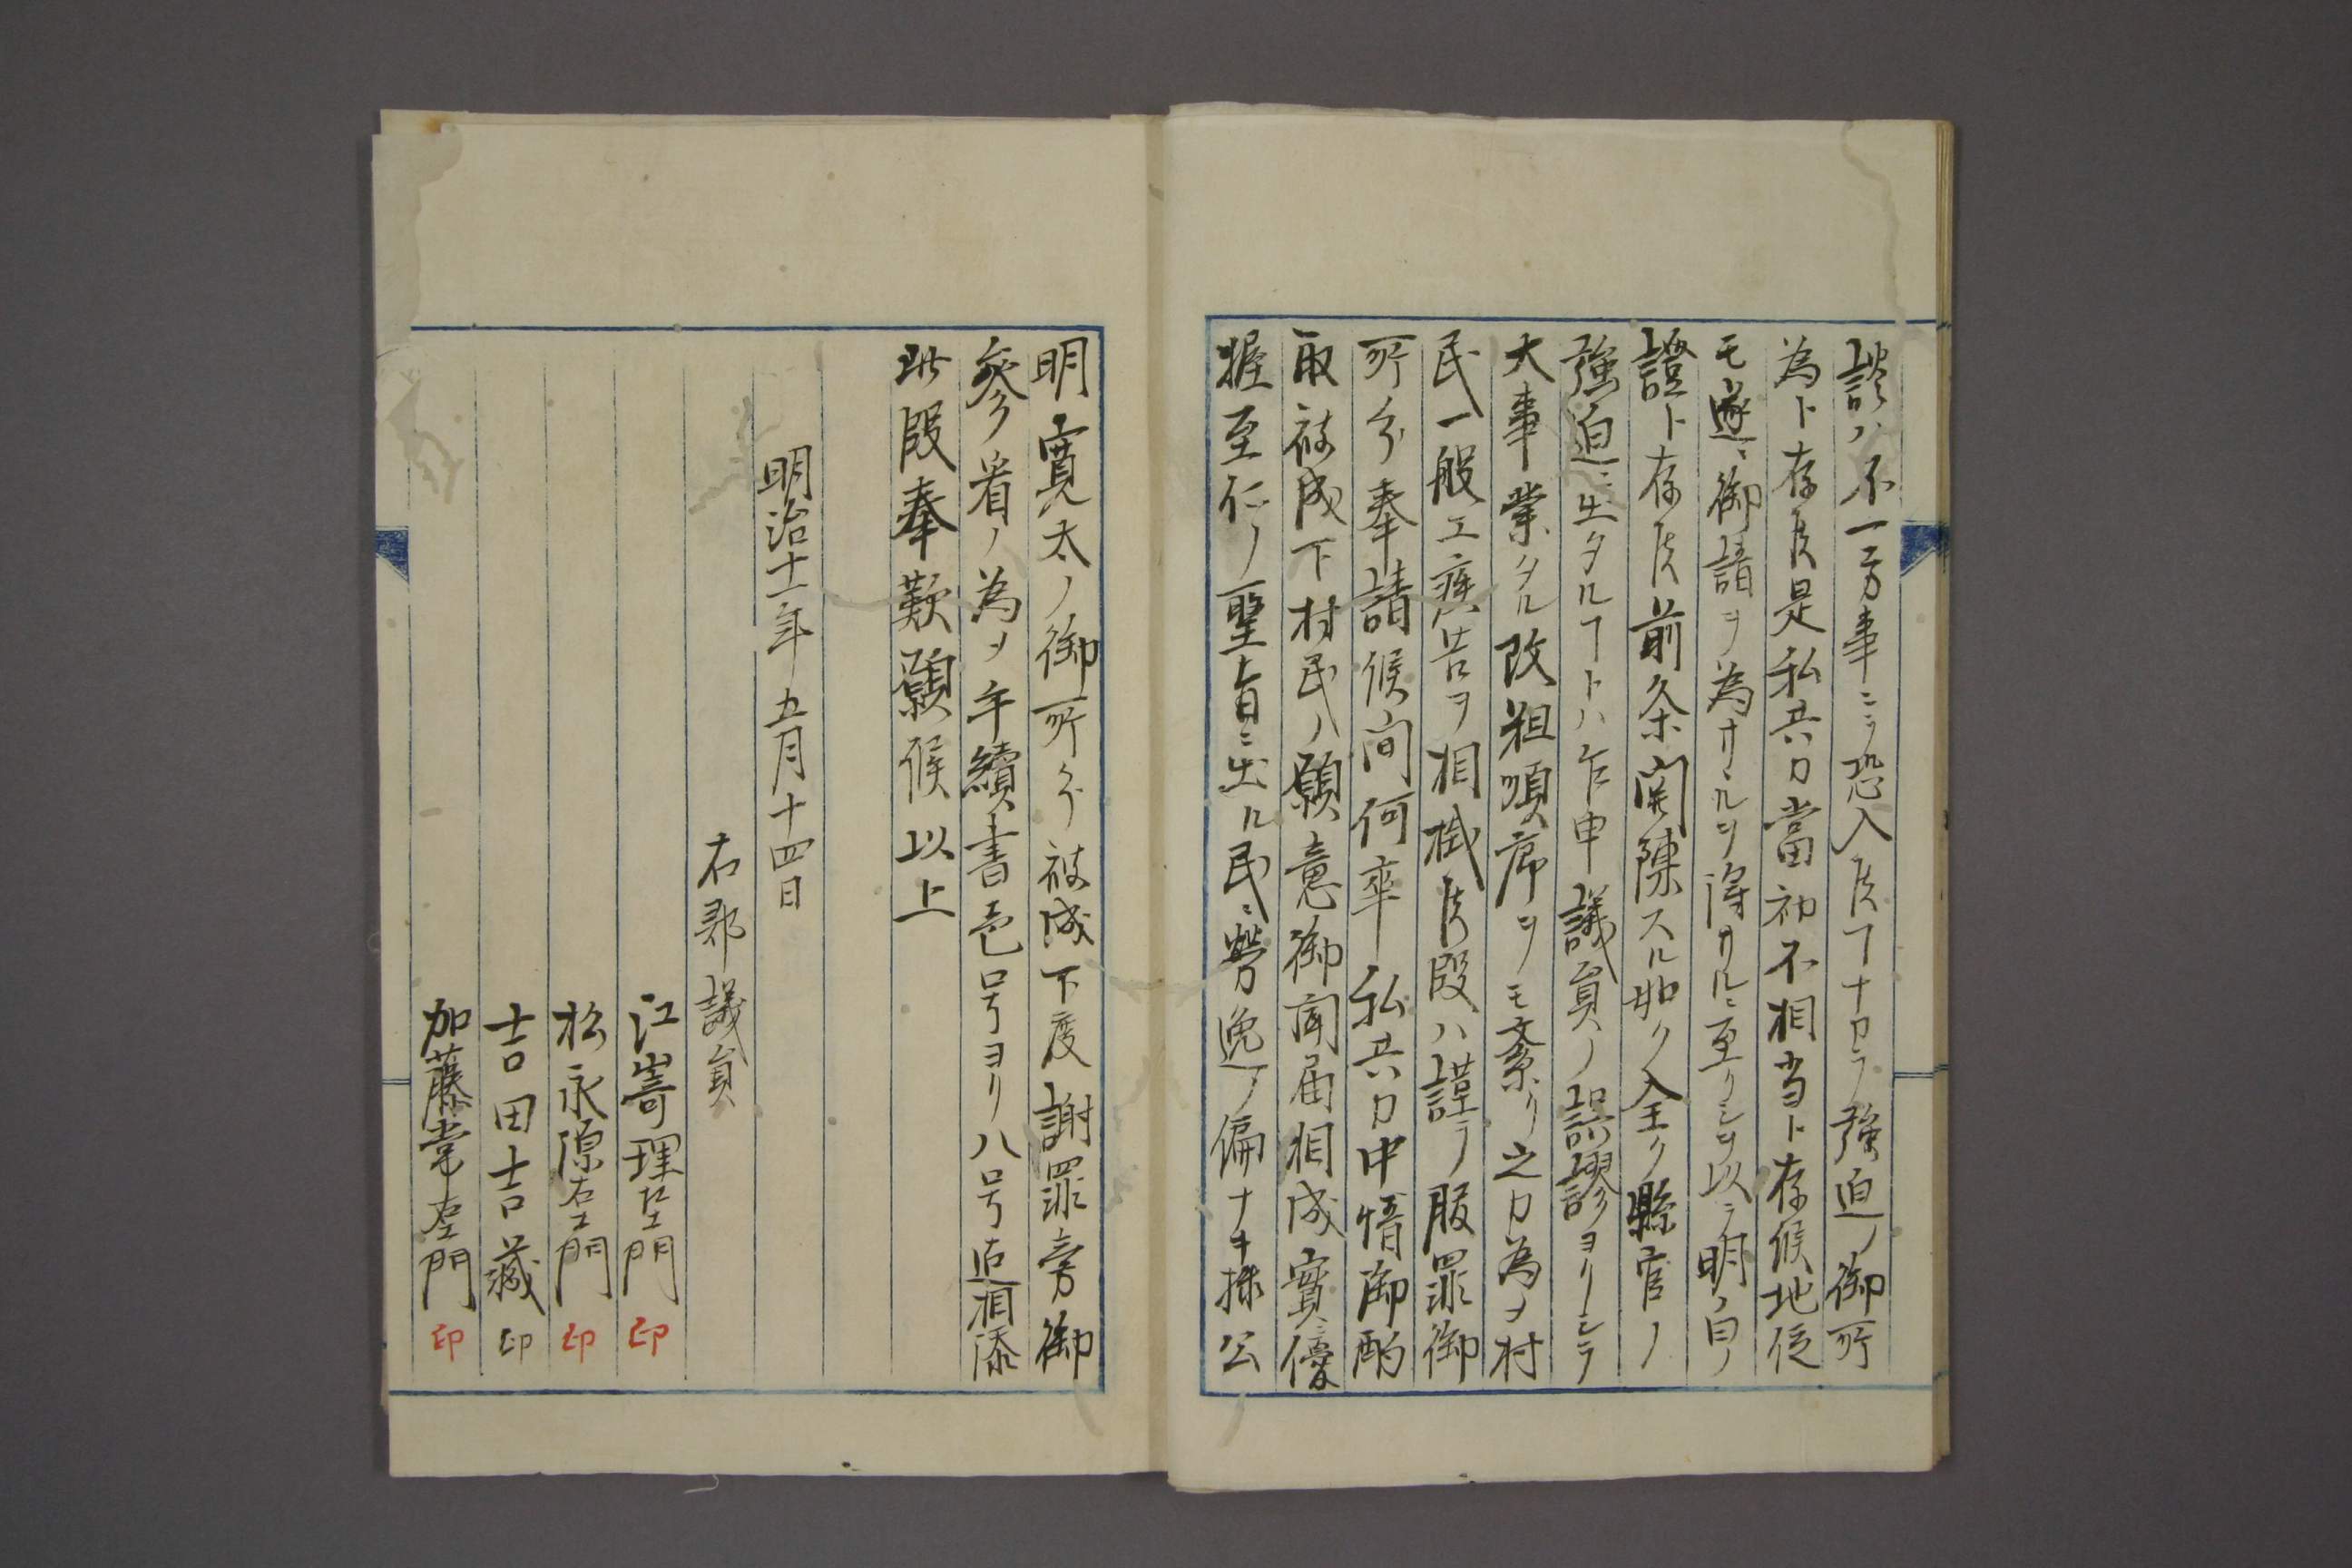 談ハ不一方事ニテ恐入候ヿナカラ強迫ノ御所
為ト存候是私共カ當初不相当ト存候地位
モ遂ニ御請ヲ為サヽルヲ得サルニ至リシヲ以テ明々白々ノ
證ト存候前条開陳スル如ク全ク縣官ノ
強迫ニ出タルヿトハ乍申議員ノ誤謬ヨリシテ
大事業タル改租順席ヲモ紊リ之カ為メ村
民一般エ疾苦ヲ相掛候段ハ謹テ服罪御
所分奉請候間何卒私共カ中情御酌
取被成下村民ノ願意御聞届相成實ニ優
握至仁ノ聖旨ニ出ル民ニ労逸ノ偏ナキ様公
明寛太ノ御所分被成下度謝罪旁御
参看ノ為メ手續書壱号ヨリ八号迠相添
此段奉歎願候以上
明治十一年五月十四日
右郡議員
江嵜理左エ門 印
松永源右エ門 印
吉田吉藏 印
加藤常左エ門 印